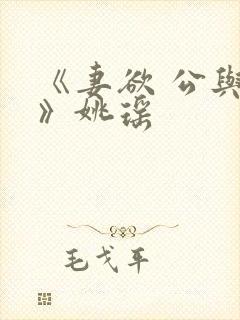 《妻欲 公與
》姚瑶
毛戈平